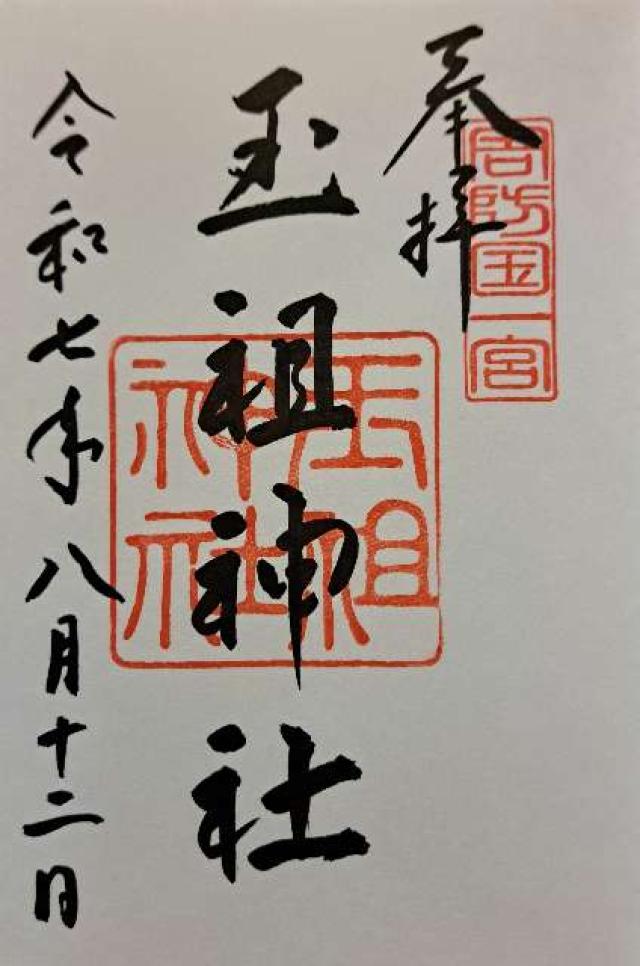 奉拝
周防国一宮
玉祖神社
玉祖神社
令和七年八月十二日